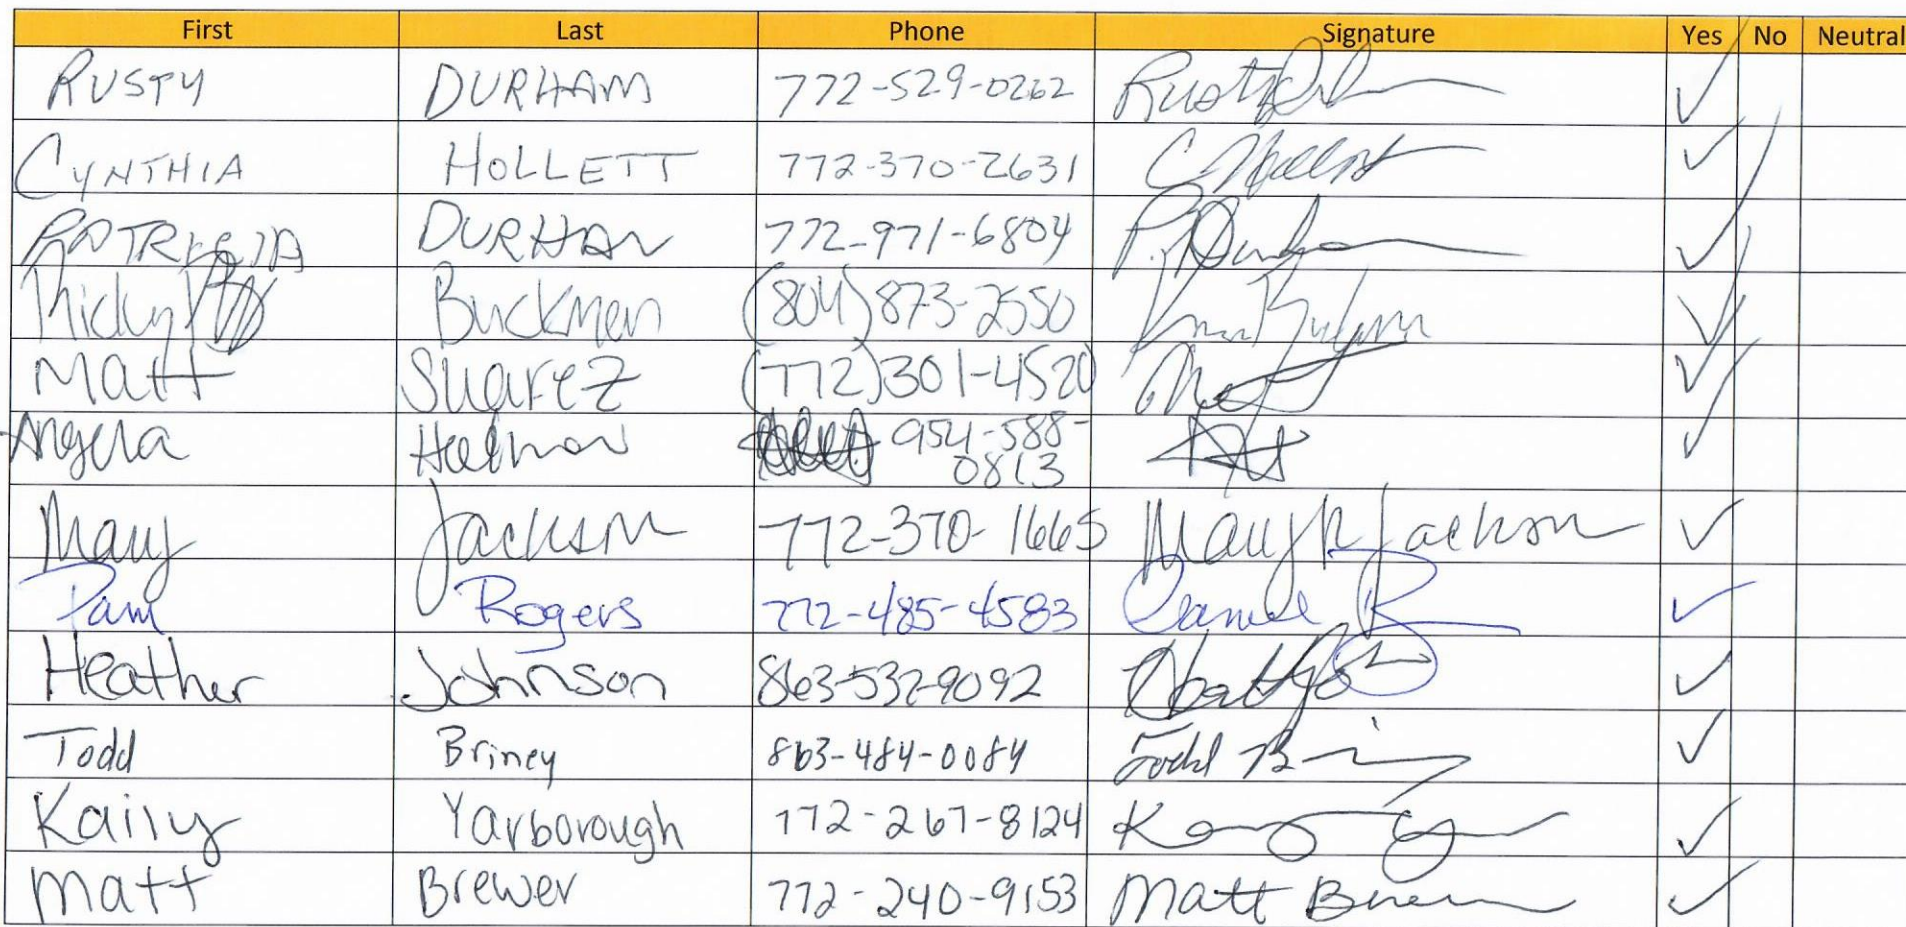 First Last Phone Signature Yes No Neutral
RUSTY DURHAM 772-529-0262 Rusty
CYNTHIA HOLLETT 772-370-2631 C Hollett
PATRICIA DURHAM 772-971-6804 P. Durham
Ricky Buckman (804)873-2550
Matt Suarez (772)301-4520
Angela 954-588-
0813
Mary Jackson 772-370-1665 Mary R Jackson
Pam Rogers 772-485-4583 R
Heather Johnson 863-532-9092
Todd Briney 863-484-0084 Todd B
Kaily Yarborough 772-267-8124 K
Matt Brewer 772-240-9153 Matt